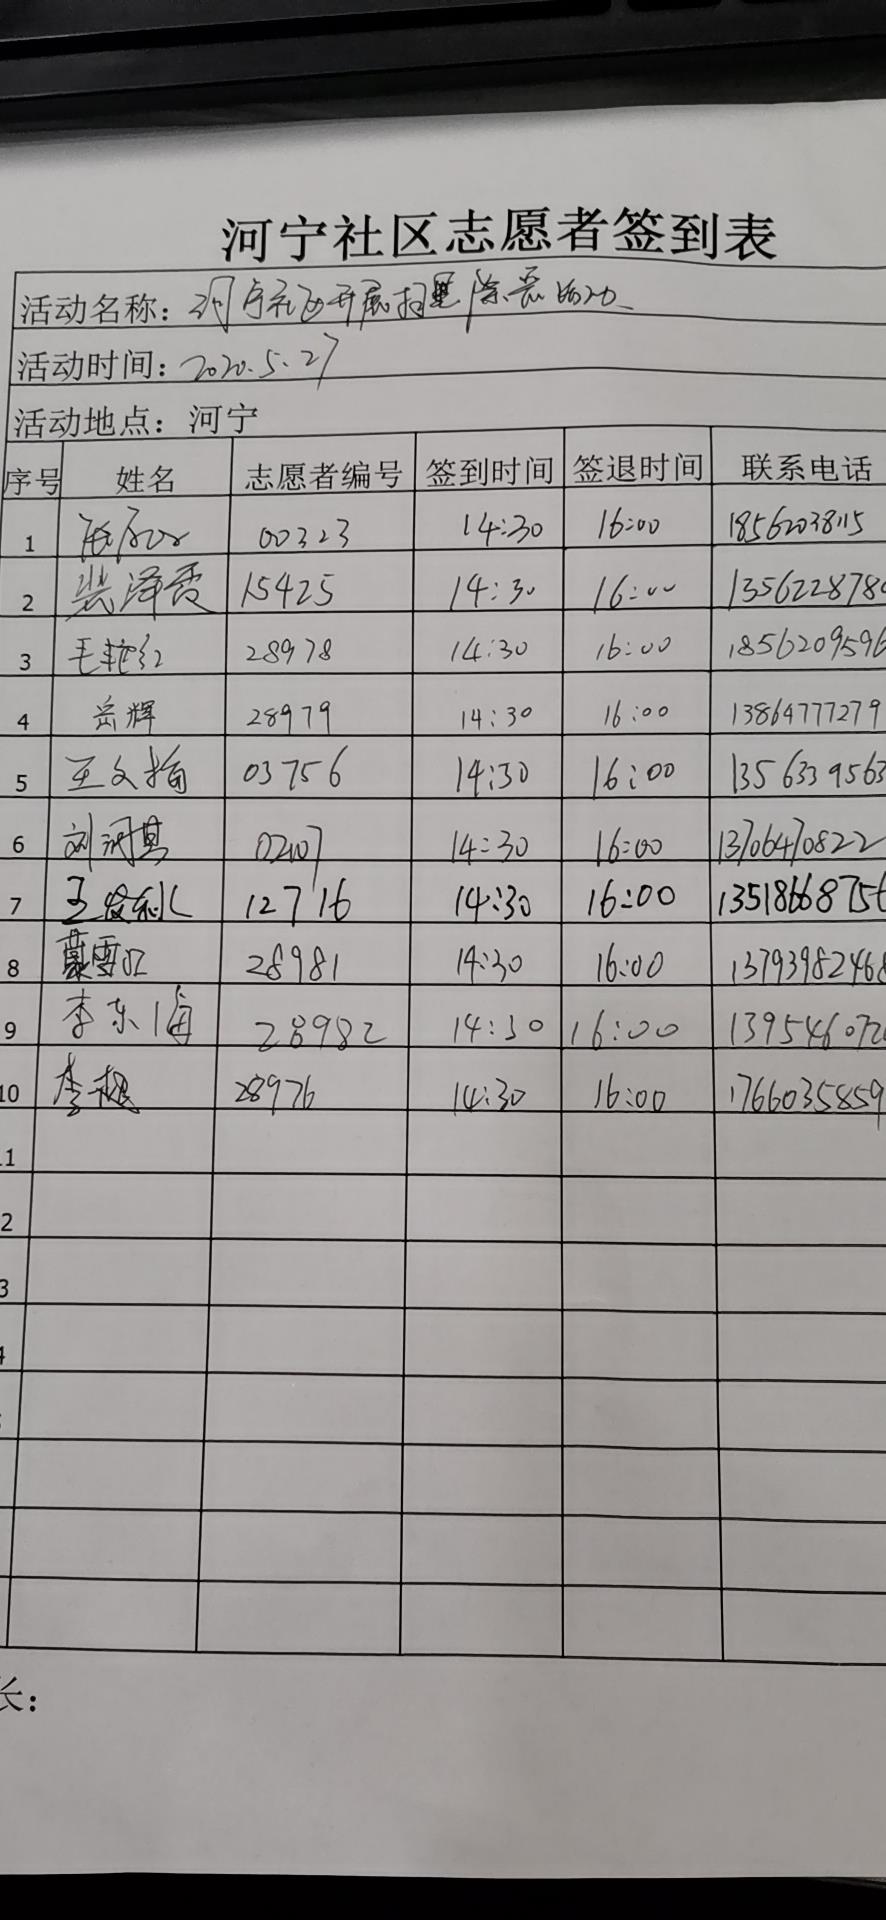 河宁社区志愿者签到表
活动名称：河宁社区开展扫黑除恶活动
活动时间：2020.5.27
活动地点：河宁
序号 姓名 志愿者编号 签到时间 签退时间 联系电话
1 00323 14:30 16:00 18562038115
2 裴泽霞 15425 14:30 16:00 1356228780
3 毛艳红 28978 14:30 16:00 1856209596
4 岳辉 28979 14:30 16:00 13864777279
5 王文楠 03756 14:30 16:00 1356339563
6 刘润其 02107 14:30 16:00 13706470822
7 12716 14:30 16:00 13518668756
8 28981 14:30 16:00 13793982468
9 李东海 28982 14:30 16:00 139546072
10 李 28976 14:30 16:00 1766035859
1
2
3
4
长：